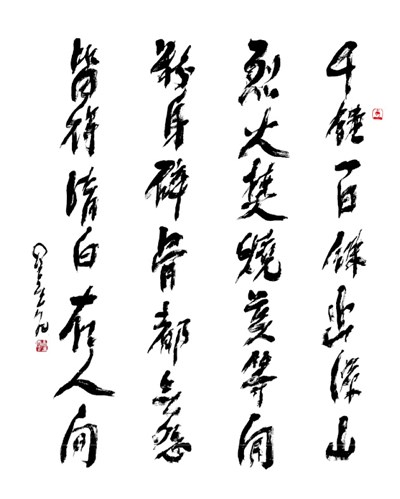 千錘百鍊出深山
烈火焚燒若等閒
粉身碎骨都無怨
留得清白在人間